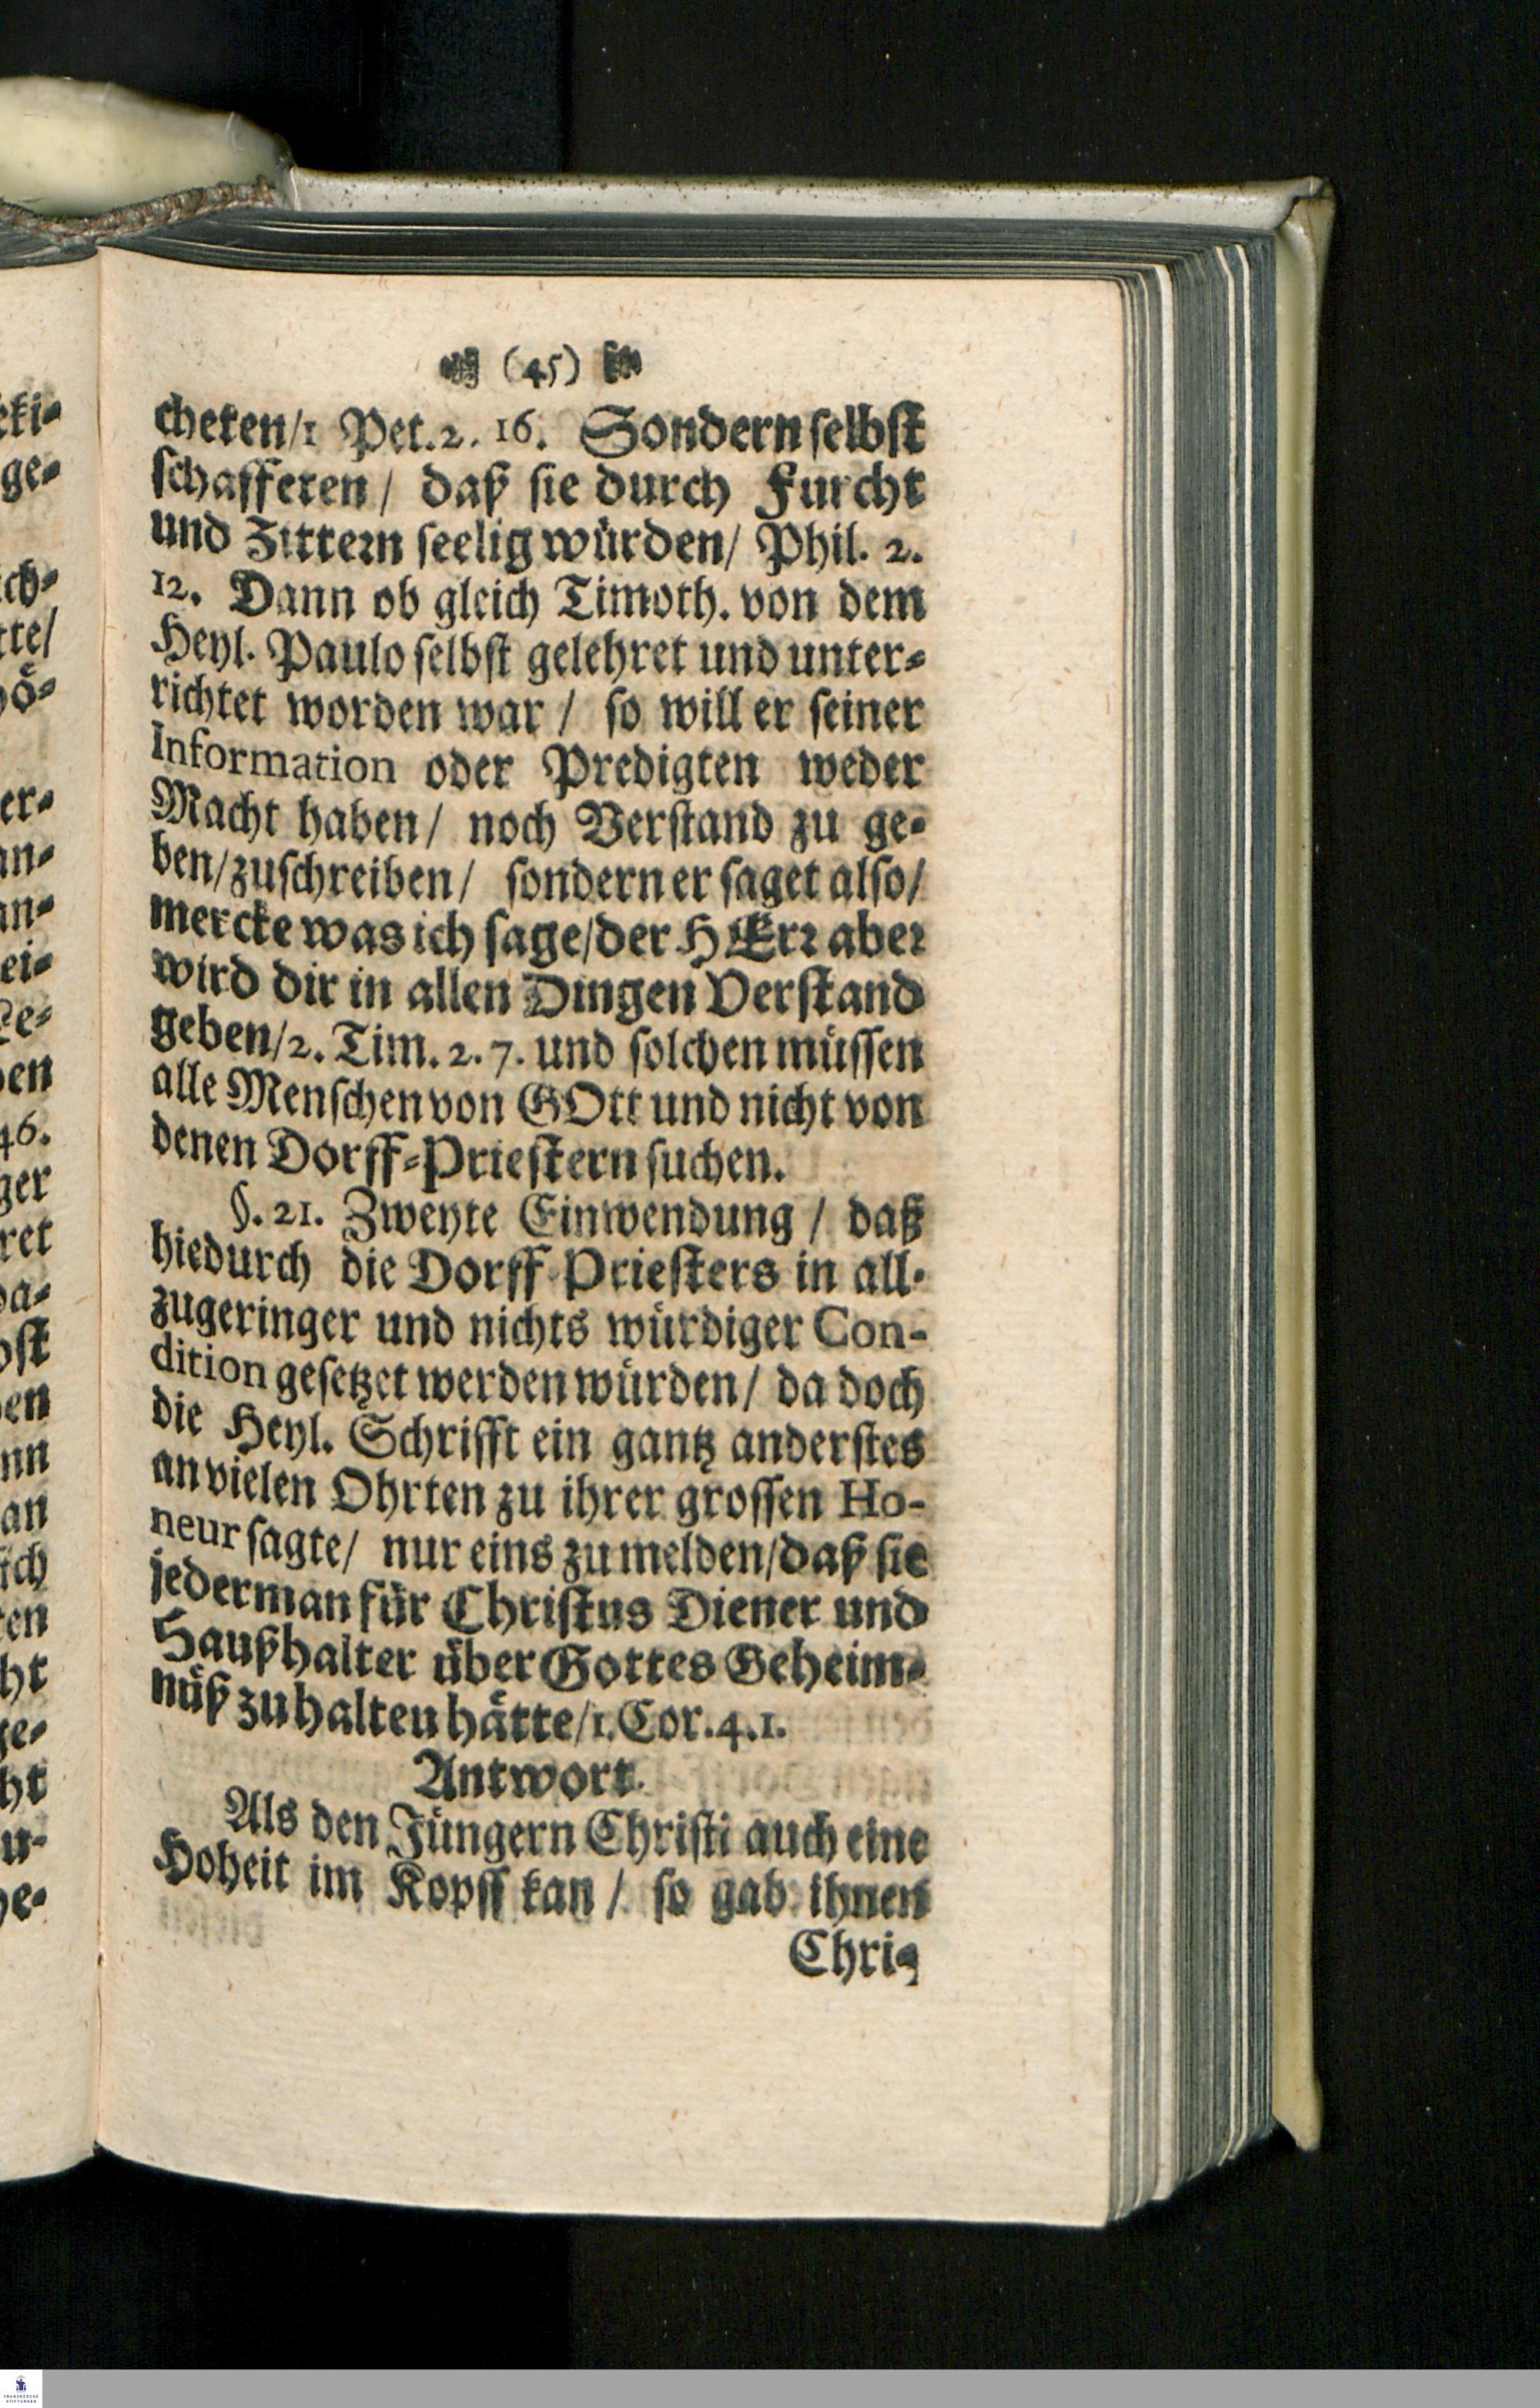 (45)
cheten/1 Pet. 2. 16. Sondern selbst
schaffeten / daß sie durch Furcht
und Zittern seelig würden/ Phil. 2.
12. Dann ob gleich Timoth. von dem
Heyl. Paulo selbst gelehret und unter-
richtet worden war / so will er seiner
Information oder Predigten weder
Macht haben / noch Verstand zu ge-
ben/zuschreiben / sondern er saget also/
mercke was ich sage/der HErr aber
wird dir in allen Dingen Verstand
geben/2. Tim. 2. 7. und solchen müssen
alle Menschen von GOtt und nicht von
denen Dorff-Priestern suchen.
§. 21. Zweyte Einwendung / daß
hiedurch die Dorff-Priesters in all-
zugeringer und nichts würdiger Con-
dition gesetzet werden würden / da doch
die Heyl. Schrifft ein gantz anderstes
an vielen Ohrten zu ihrer grossen Ho-
neur sagte / nur eins zu melden/daß sie
jederman für Christus Diener und
Haußhalter über Gottes Geheim-
nüß zu halten hätte/1. Cor. 4. 1.
Antwort.
Als den Jüngern Christi auch eine
Hoheit im Kopff kan / so gab ihnen
Chri-
FRANCKESCHE
STIFTUNGEN